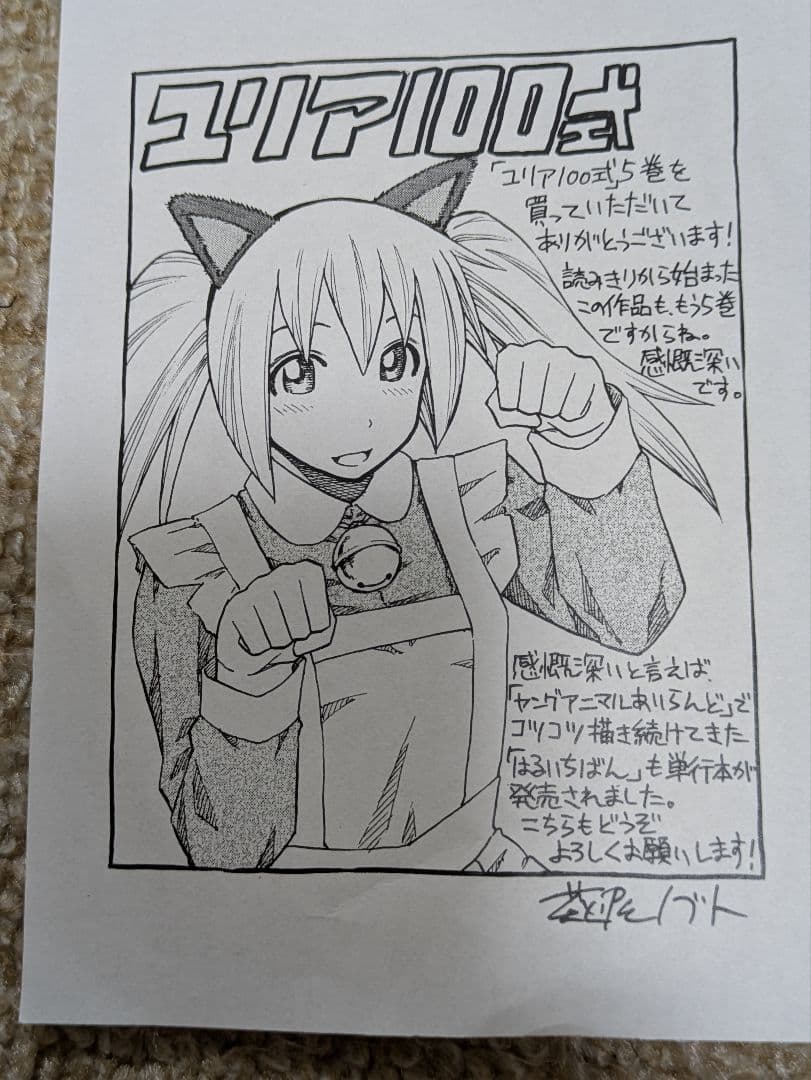 ユリア100式
「ユリア100式」5巻を
買っていただいて
ありがとうございます!
読みきりから始まった
この作品も、もう5巻
ですからね。
感慨深い
です。
感慨深いと言えば
「ヤングアニマルあいらんど」で
コツコツ描き続けてきた
「はるいちばん」も単行本が
発売されました。
こちらもどうぞ
よろしくお願いします!
ノブト